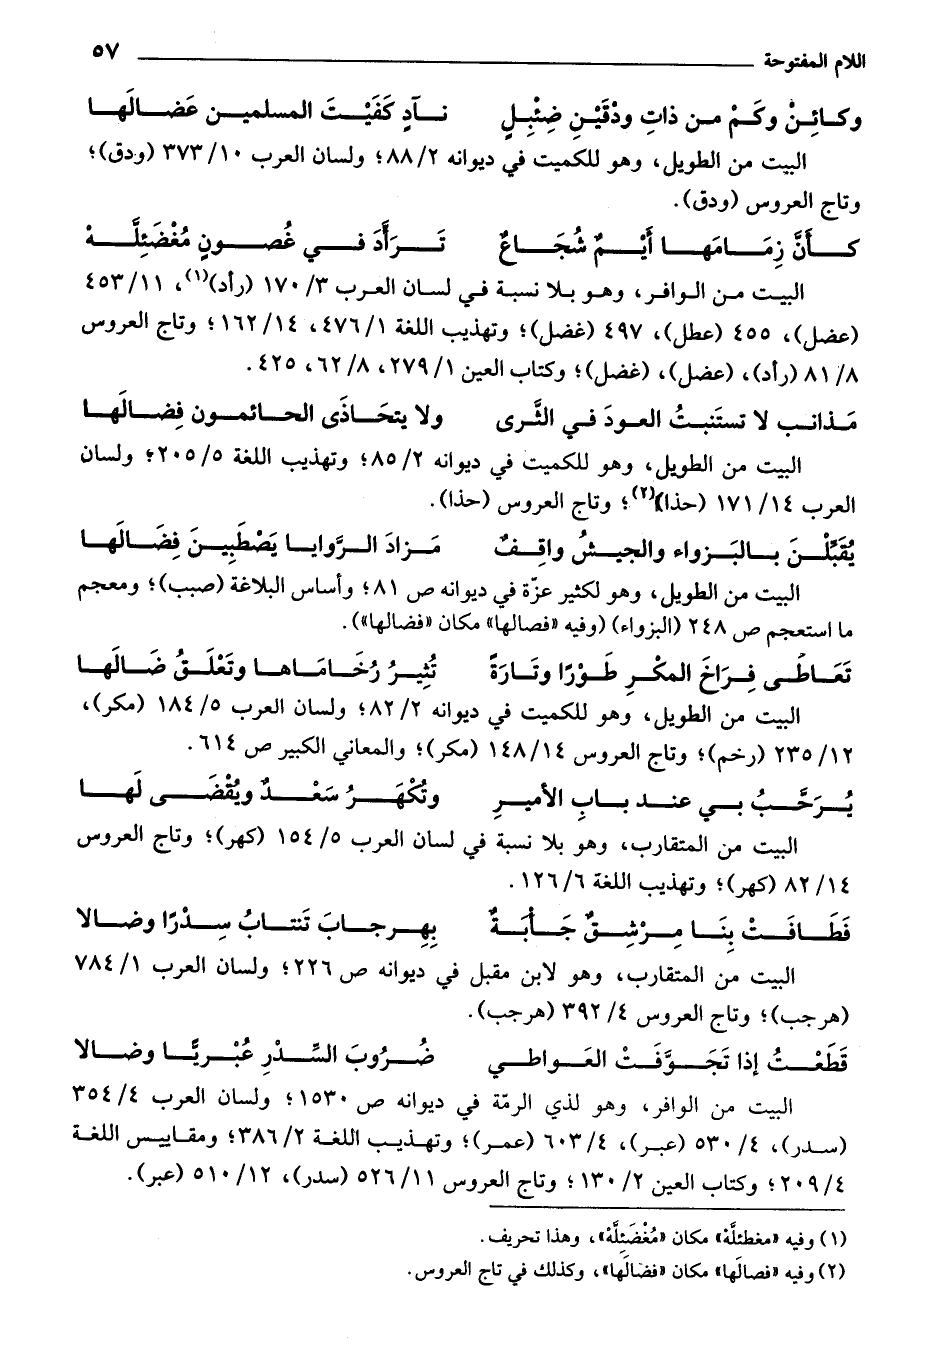 اللام المفتوحة ٥٧
وكـائِنْ وكَـمْ مـن ذاتِ ودْقَيْنِ ضِئْبِلٍ نـآدٍ كَفَيْـتَ المسلميـن عَضـالَهـا
البيت من الطويل، وهو للكميت في ديوانه ٢/ ٨٨؛ ولسان العرب ١٠/ ٣٧٣ (ودق)؛
وتاج العروس (ودق).
كـأَنَّ زِمَـامَهـا أَيْـمٌ شُجَـاعٌ تَـرَأَّدَ فـي غُصـونٍ مُغْضَئِلَّـهْ
البيـت مـن الـوافـر، وهـو بـلا نسبـة فـي لسـان العـرب ٣/ ١٧٠ (رأد)(١)، ١١/ ٤٥٣
(عضل)، ٤٥٥ (عطل)، ٤٩٧ (غضل)؛ وتهذيب اللغة ١/ ٤٧٦، ١٤/ ١٦٢؛ وتاج العروس
٨/ ٨١ (رأد)، (عضل)، (غضل)؛ وكتاب العين ١/ ٢٧٩، ٨/ ٦٢، ٤٢٥.
مَـذانـب لا تستَنبـتُ العـودَ فـي الثَّرى ولا يتحَـاذَى الحـائمـون فِضـالَها
البيت من الطويل، وهو للكميت في ديوانه ٢/ ٨٥؛ وتهذيب اللغة ٥/ ٢٠٥؛ ولسان
العرب ١٤/ ١٧١ (حذا)(٢)؛ وتاج العروس (حذا).
يُقَبِّلْـنَ بـالبَـزواء والجيـشُ واقِـفٌ مَـزادَ الـرَّوايـا يَصْطَبِيـنَ فِضَـالَهـا
البيت من الطويل، وهو لكثير عزّة في ديوانه ص ٨١؛ وأساس البلاغة (صبب)؛ ومعجم
ما استعجم ص ٢٤٨ (البزواء) (وفيه «فصالها» مكان «فضالها»).
تَعَـاطَـى فِـرَاخَ المكْـرِ طَـوْرًا وتَـارَةً تُثِيـرُ رُخَـامَـاهـا وتَعْلَـقُ ضَـالَهـا
البيت من الطويل، وهو للكميت في ديوانه ٢/ ٨٢؛ ولسان العرب ٥/ ١٨٤ (مكر)،
١٢/ ٢٣٥ (رخم)؛ وتاج العروس ١٤/ ١٤٨ (مكر)؛ والمعاني الكبير ص ٦١٤.
يُـرَحَّـبُ بـي عنـد بـابِ الأميـرِ وتُكْهَـرُ سَعْـدٌ ويُقْضَـى لَهـا
البيت من المتقارب، وهو بلا نسبة في لسان العرب ٥/ ١٥٤ (كهر)؛ وتاج العروس
١٤/ ٨٢ (كهر)؛ وتهذيب اللغة ٦/ ١٢٦.
فَطَـافَـتْ بِنَـا مِـرْشِـقٌ جَـأْبَـةٌ بِهِـرجـابَ تَنتـابُ سِـدْرًا وضـالا
البيـت مـن المتقارب، وهـو لابن مقبل فـي ديوانه ص ٢٢٦؛ ولسان العرب ١/ ٧٨٤
(هرجب)؛ وتاج العروس ٤/ ٣٩٢ (هرجب).
قَطَعْـتُ إذا تَجَـوَّفَـتْ العَـواطِي ضُـرُوبَ السِّـدْرِ عُبْـريًّـا وضـالا
البيت من الوافر، وهو لذي الرمّة في ديوانه ص ١٥٣٠؛ ولسان العرب ٤/ ٣٥٤
(سـدر)، ٤/ ٥٣٠ (عبـر)، ٤/ ٦٠٣ (عمـر)؛ وتهـذيـب اللغـة ٢/ ٣٨٦؛ ومقـاييـس اللغـة
٤/ ٢٠٩؛ وكتاب العين ٢/ ١٣٠؛ وتاج العروس ١١/ ٥٢٦ (سدر)، ١٢/ ٥١٠ (عبر).
(١) وفيه «مغطئلَّة» مكان «مُغْضَئِلَّهْ»، وهذا تحريف.
(٢) وفيه «فصالَها» مكان «فضالَها»، وكذلك في تاج العروس.